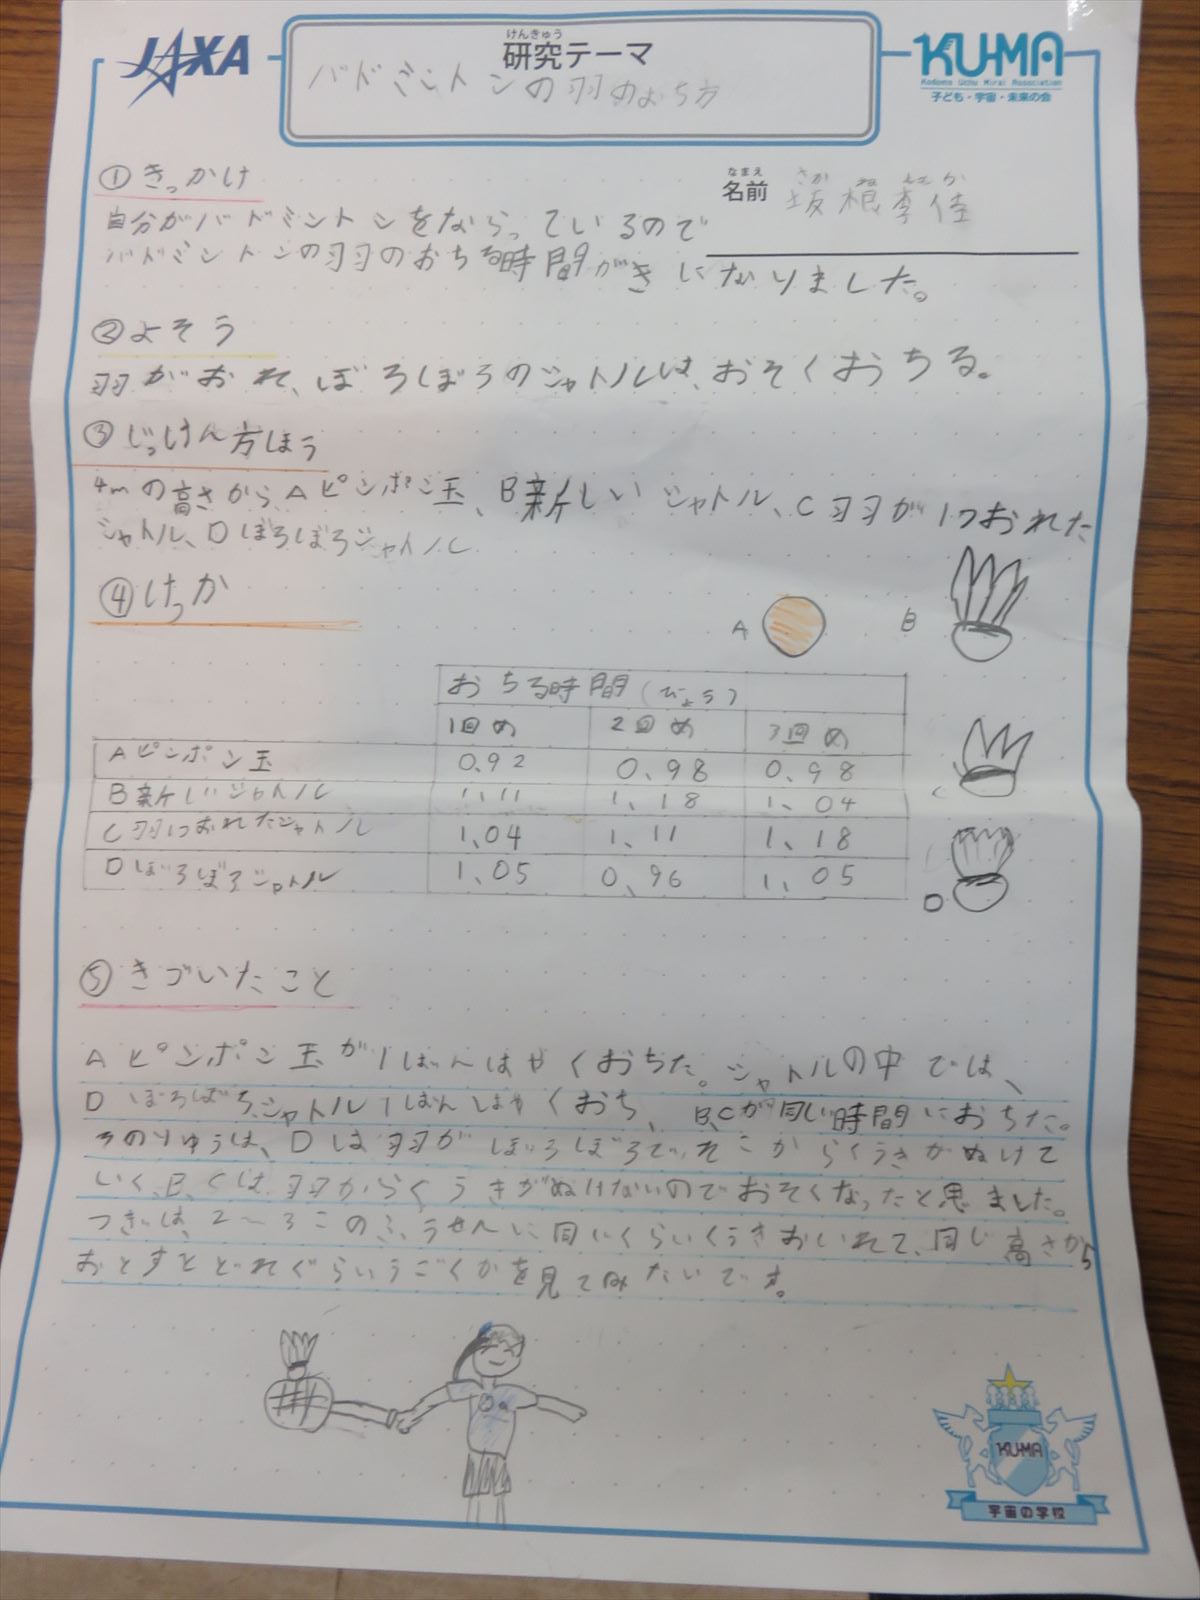 JAXA
けんきゅう
研究テーマ
KU-MA
Kodomo Uchu Mirai Association
子ども・宇宙・未来の会
バドミントンの羽のおち方
なまえ
名前
さか ね
坂根 佳
①きっかけ
自分がバドミントンをならっているので
バドミントンの羽のおちる時間がきになりました。
②よそう
羽がおれ、ぼろぼろのシャトルは、おそくおちる。
③じっけん方ほう
4mの高さから、Aピンポン玉、B新しいシャトル、C羽が1つおれた
シャトル、Dぼろぼろシャトル
④けっか
A
B
C
D
おちる時間(びょう)
1回め 2回め 3回め
Aピンポン玉 0.92 0.98 0.98
B新しいシャトル 1.11 1.18 1.04
C羽1つおれたシャトル 1.04 1.11 1.18
Dぼろぼろシャトル 1.05 0.96 1.05
⑤きづいたこと
Aピンポン玉が1ばんはやくおちた。シャトルの中では、
Dぼろぼろシャトル1ばんはやくおち、B、Cが同じ時間におちた。
そのりゆうは、Dは羽がぼろぼろで、そこからくうきがぬけて
いく、B、Cは、羽からくうきがぬけないのでおそくなったと思ました。
つぎは、2〜3このふうせんに同じくらいくうきおいれて、同じ高さから
おとすとどれぐらいうごくかを見てみたいです。
KU-MA
宇宙の学校